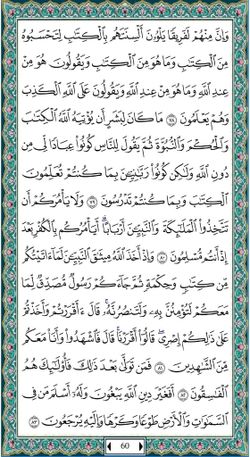 وَإِنَّ مِنْهُمْ لَفَرِيقًا يَلْوُۥنَ أَلْسِنَتَهُم بِٱلْكِتَٰبِ لِتَحْسَبُوهُ
مِنَ ٱلْكِتَٰبِ وَمَا هُوَ مِنَ ٱلْكِتَٰبِ وَيَقُولُونَ هُوَ مِنْ
عِندِ ٱللَّهِ وَمَا هُوَ مِنْ عِندِ ٱللَّهِ وَيَقُولُونَ عَلَى ٱللَّهِ ٱلْكَذِبَ
وَهُمْ يَعْلَمُونَ ٧٨ مَا كَانَ لِبَشَرٍ أَن يُؤْتِيَهُ ٱللَّهُ ٱلْكِتَٰبَ
وَٱلْحُكْمَ وَٱلنُّبُوَّةَ ثُمَّ يَقُولَ لِلنَّاسِ كُونُوا۟ عِبَادًا لِّى مِن
دُونِ ٱللَّهِ وَلَٰكِن كُونُوا۟ رَبَّٰنِيِّۦنَ بِمَا كُنتُمْ تُعَلِّمُونَ
ٱلْكِتَٰبَ وَبِمَا كُنتُمْ تَدْرُسُونَ ٧٩ وَلَا يَأْمُرَكُمْ أَن
تَتَّخِذُوا۟ ٱلْمَلَٰٓئِكَةَ وَٱلنَّبِيِّۦنَ أَرْبَابًا أَيَأْمُرُكُم بِٱلْكُفْرِ بَعْدَ
إِذْ أَنتُم مُّسْلِمُونَ ٨٠ وَإِذْ أَخَذَ ٱللَّهُ مِيثَٰقَ ٱلنَّبِيِّۦنَ لَمَآ ءَاتَيْتُكُم
مِّن كِتَٰبٍ وَحِكْمَةٍ ثُمَّ جَآءَكُمْ رَسُولٌ مُّصَدِّقٌ لِّمَا
مَعَكُمْ لَتُؤْمِنُنَّ بِهِۦ وَلَتَنصُرُنَّهُۥ قَالَ ءَأَقْرَرْتُمْ وَأَخَذْتُمْ
عَلَىٰ ذَٰلِكُمْ إِصْرِى قَالُوٓا۟ أَقْرَرْنَا قَالَ فَٱشْهَدُوا۟ وَأَنَا۠ مَعَكُم
مِّنَ ٱلشَّٰهِدِينَ ٨١ فَمَن تَوَلَّىٰ بَعْدَ ذَٰلِكَ فَأُو۟لَٰٓئِكَ هُمُ
ٱلْفَٰسِقُونَ ٨٢ أَفَغَيْرَ دِينِ ٱللَّهِ يَبْغُونَ وَلَهُۥٓ أَسْلَمَ مَن فِى
ٱلسَّمَٰوَٰتِ وَٱلْأَرْضِ طَوْعًا وَكَرْهًا وَإِلَيْهِ يُرْجَعُونَ ٨٣
60